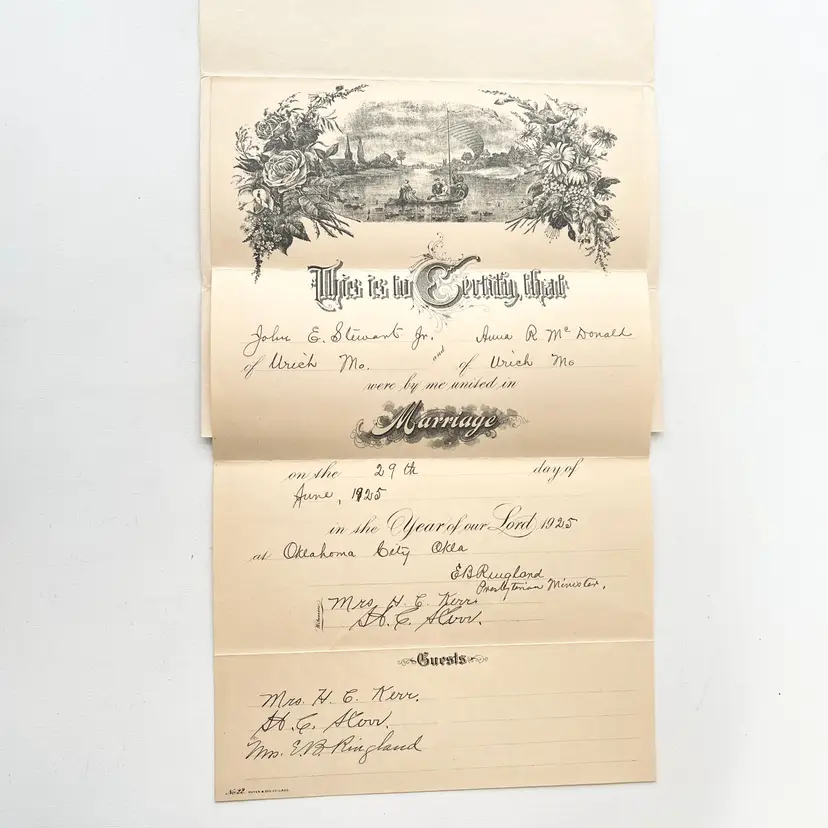 This is to Certify, that
John E. Stewart Jr. and Anna R. McDonald
of Urich Mo. of Urich Mo
were by me united in
Marriage
on the 29th day of
June, 1925
in the Year of our Lord 1925
at Oklahoma City Okla
E B Ringland
Presbyterian Minister.
Witnesses
Mrs. H. C. Kerr.
H. C. Kerr.
Guests
Mrs. H. C. Kerr.
H. C. Kerr.
Mrs. E. B. Ringland
No 22.